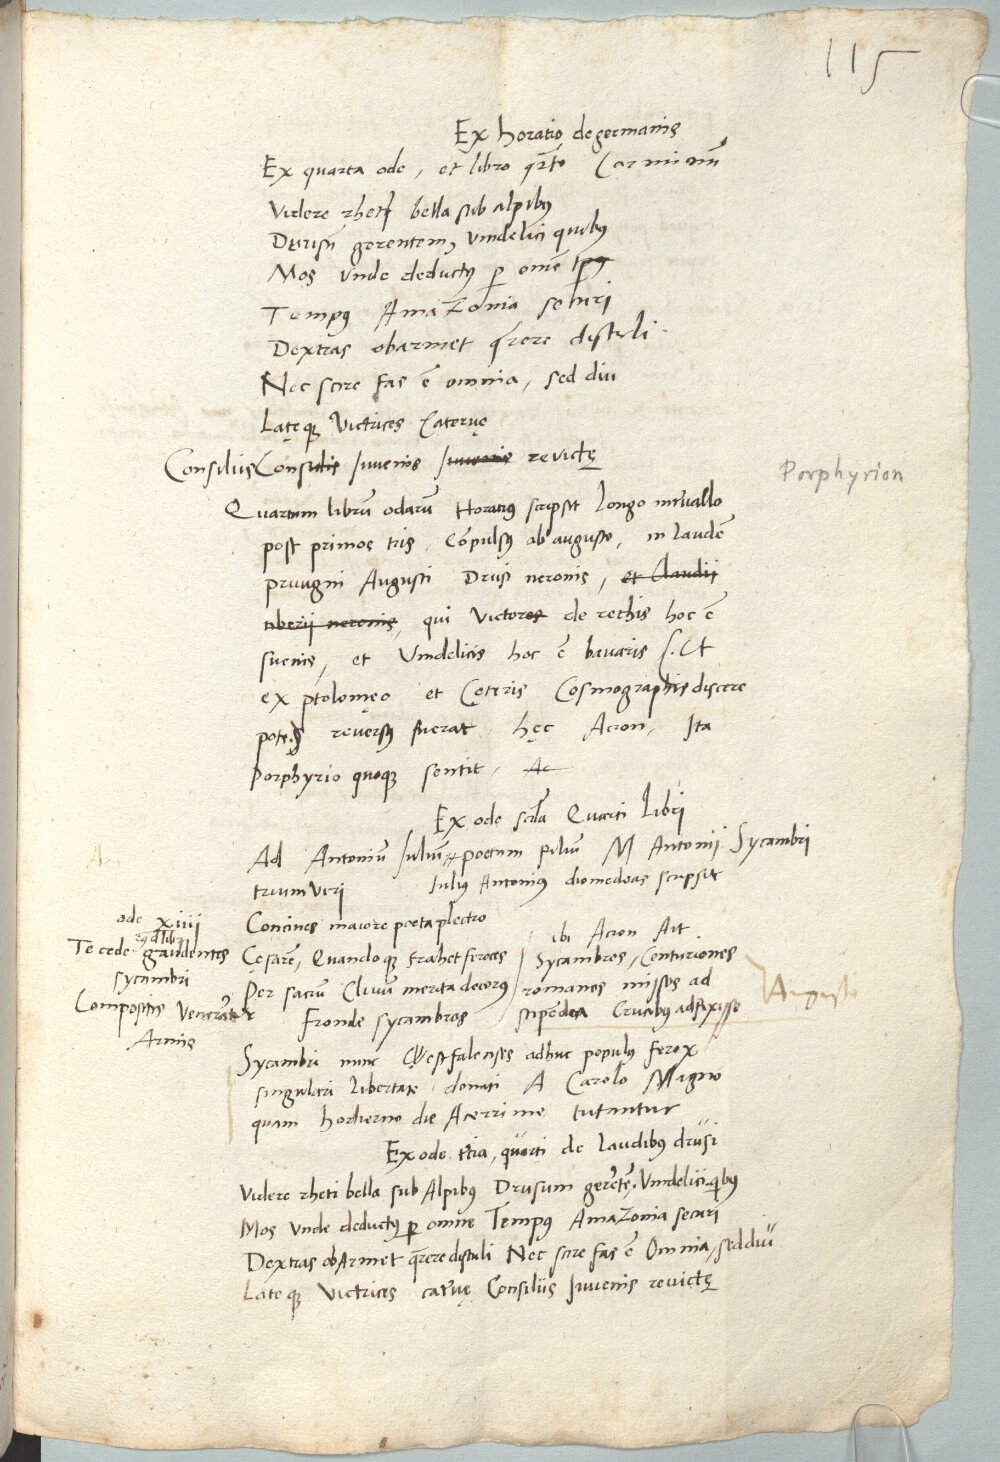 115
Ex horatio de germanis
Ex quarta ode, et libro q̄rto Carminū
Videre rheti bella sub alpibꝰ
Drusū gerentem, vindelici quibꝰ
Mos vnde deductꝰ p omē tpꝰ
Tempꝰ AmaZonia securi
Dextras obarmet q̄rere distuli.
Nec scire fas ē omnia, sed diu
Lateqꝫ Victrices Catervę
Consiliis Consulis Iuvenis Iuvenis revictę
Porphyrion
Quartum librū odarū Horatiꝰ scripsit longo intervallo
post primos tris, Cōpulsꝰ ab augusto, in laudē
privigni Augusti Drusi neronis, et Claudii
tiberii neronis, qui Victores de rethis hoc ē
suevis, et Vindelicis hoc ē bavaris s. ut
ex ptolomęo et Cęteris Cosmographis discere
potes reversꝰ fuerat. hęc Acron. Ita
Porphyrio quoqꝫ sentit. Ac
Ex ode scđa Quarti Libri
Ad Antoniū Iuliū poetam filiū M Antonii Sycambri
triumviri Iuliꝰ Antoniꝰ diomedeas scripsit
ode xiiii
eiꝰdē lib
Te cede gaudentes
sycambri
Compositis Venerātur
Armis
Concines maiore poeta plectro
Cęsarē, Quandoqꝫ trahet feroces
Per sacrū Clivum merita decorꝰ
Fronde sycambros
ibi Acron Ait
Sycambros, Centuriones
romanos missos ad
stipēdia Crucibꝰ adfixisse
Augusto
Sycambri nunc Westfalenses adhuc populꝰ ferox
singulari libertate donati A Carolo Magno
quam hodierno die Acerrime tutantur
Ex ode t̄tia, quarti de laudibꝰ drusi
Videre rheti bella sub Alpibꝰ Drusum gerētē, Vindelici qibꝰ
Mos vnde deductꝰ p omne Tempꝰ AmaZonia securi
Dextras obArmet q̄rere distuli Nec scire fas ē Omnia, sed diu
Lateqꝫ Victrices catervę Consiliis Iuvenis revictę